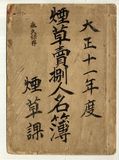 大正十一年度
煙草賣捌人名簿
煙草課